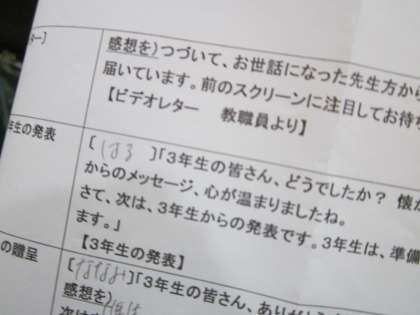 ター】
感想を)つづいて、お世話になった先生方から
届いています。前のスクリーンに注目してお待ち
【ビデオレター　教職員より】
年生の発表
[はる]「３年生の皆さん、どうでしたか？ 懐か
からのメッセージ、心が温まりましたね。
さて、次は、３年生からの発表です。３年生は、準備
ます。」
【３年生の発表】
の贈呈
[ななみ]「３年生の皆さん、ありが
感想を)